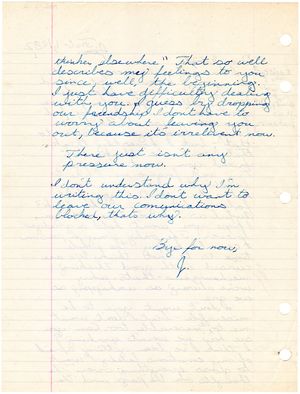 thinker, elsewhere." That so well
describes my feelings to you
since, well, the beginning.
I just have difficulty dealing
with you. I guess by dropping
our friendship I don't have to
worry about leaving you
out, because its irrelevent now.
There just isn't any
pressure now.
I don't understand why I'm
writing this. I don't want to
leave our comunications
blocked, thats why.
Bye for now,
J.